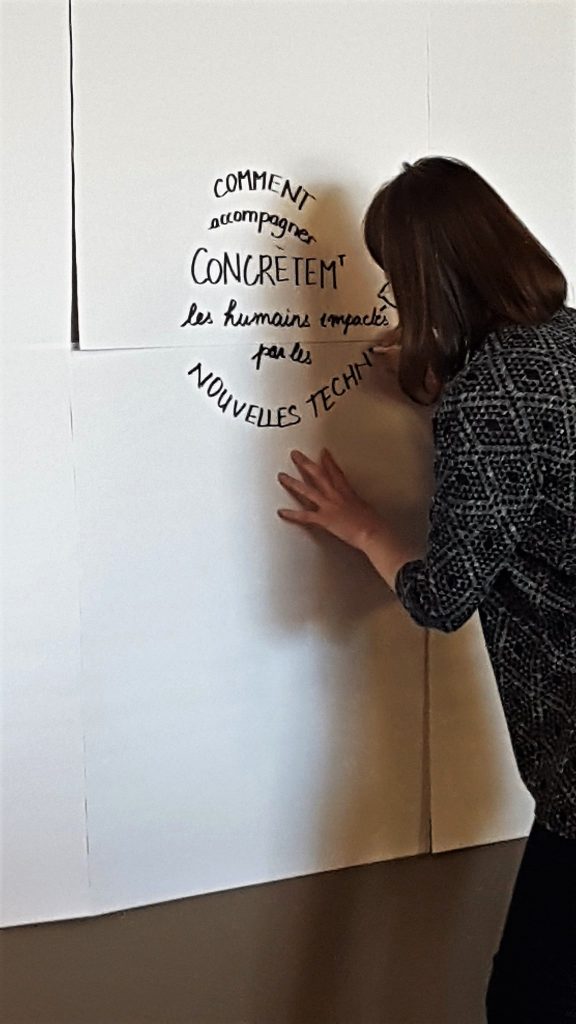 COMMENT
accompagner
CONCRÈTEMᵀ
les humains impactés
par les
NOUVELLES TECHN